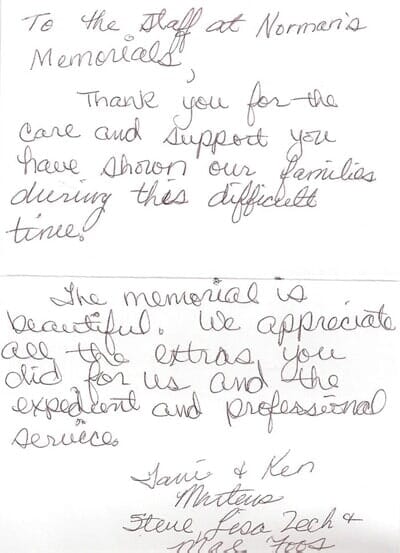 To the Staff at Norman's
Memorials,
Thank you for the
care and support you
have shown our families
during this difficult
time.
The memorial is
beautiful. We appreciate
all the extras you
did for us and the
expedient and professional
service.
& Ken
Martens
Steve, Lisa Zech &
Foos